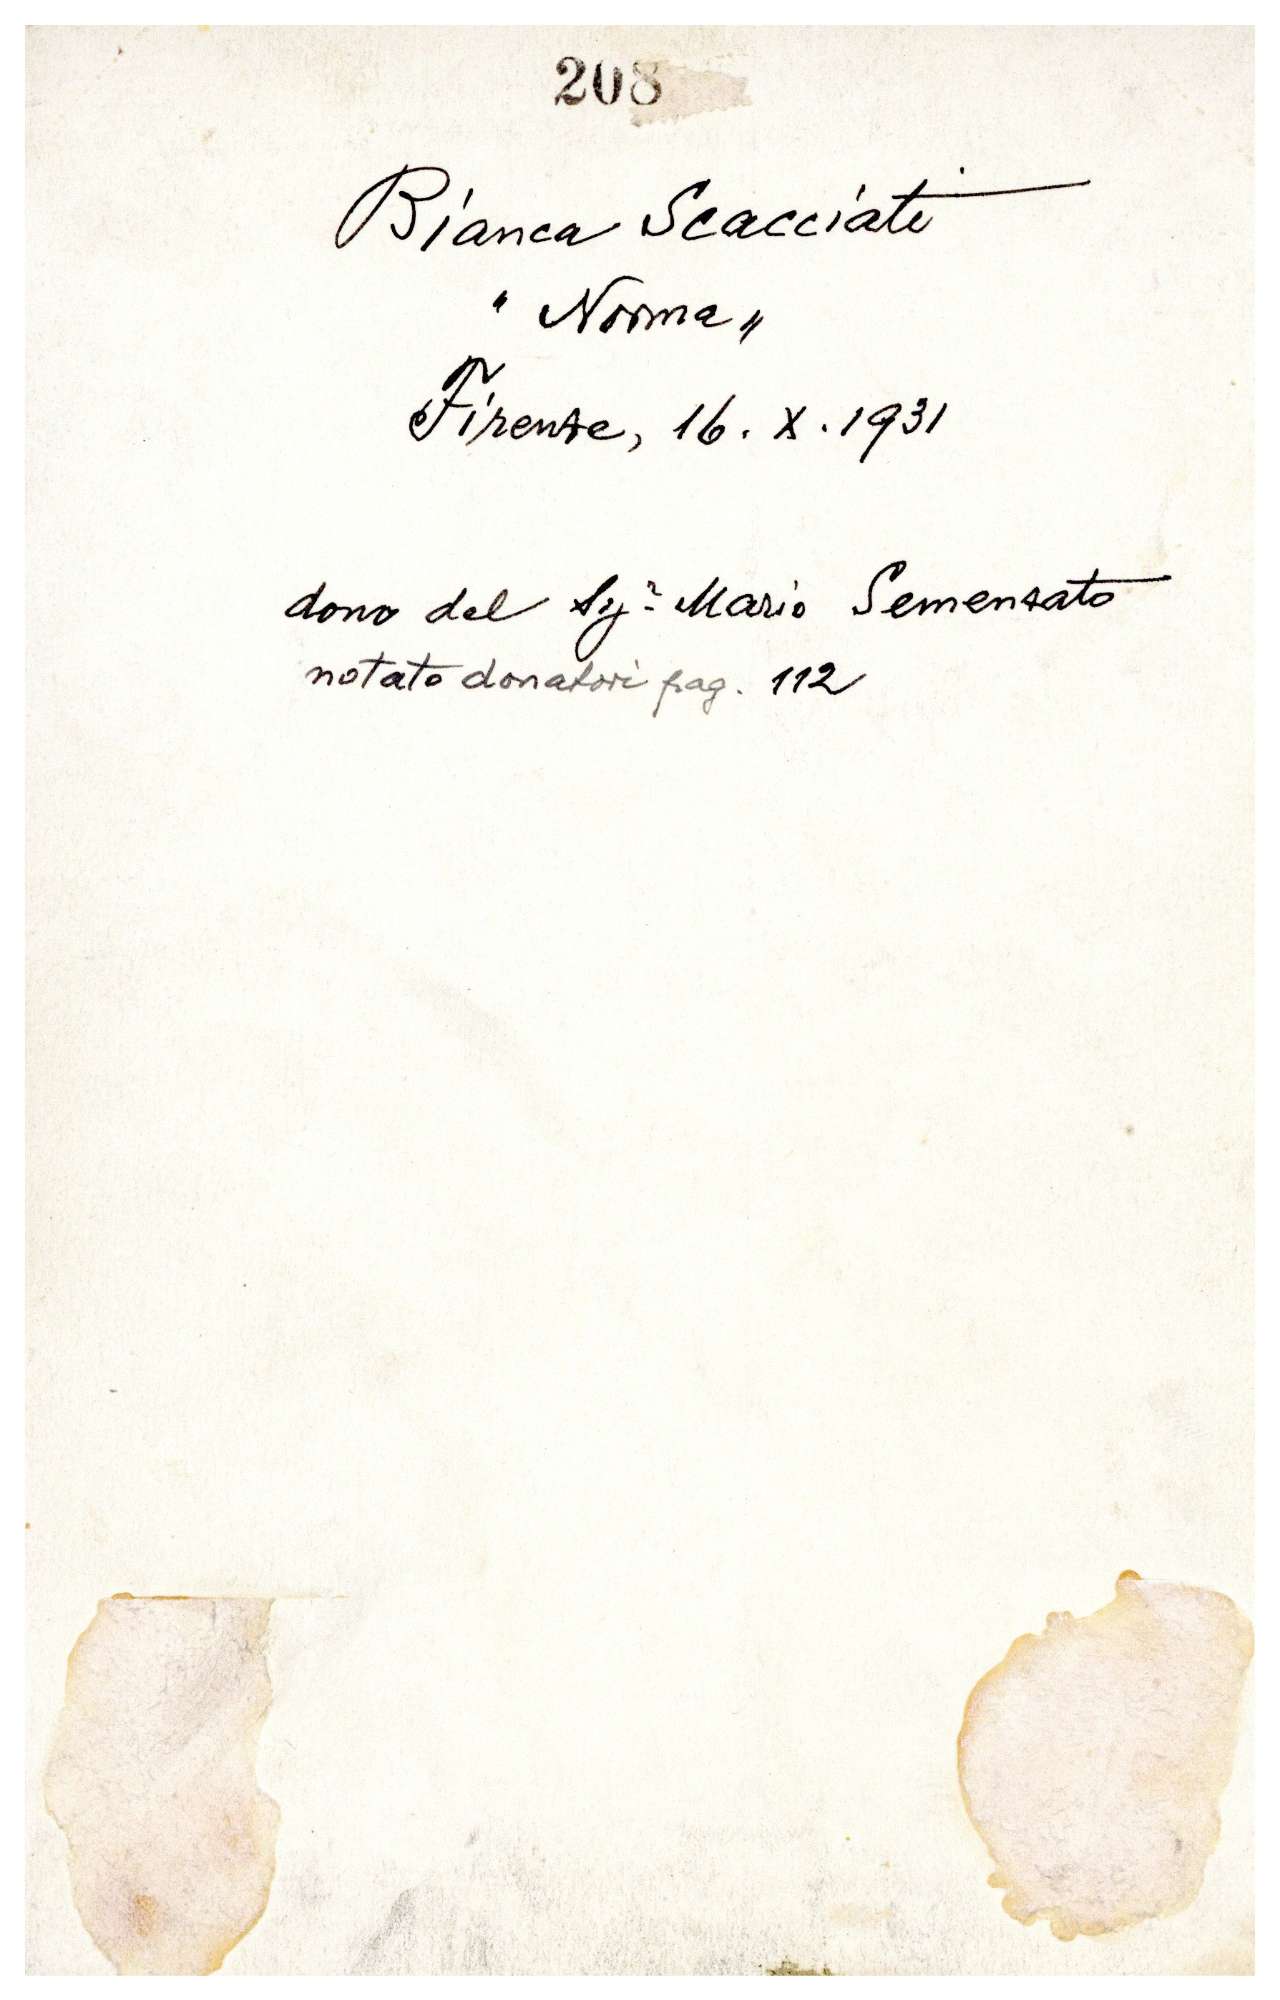 208
Bianca Scacciati
" Norma „
Firenze, 16. X. 1931
dono del Sgr Mario Semenzato
notato donatori pag. 112